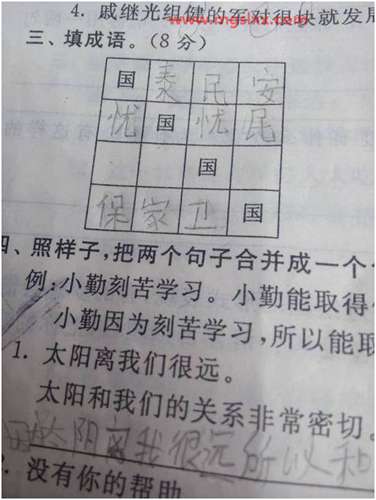 4. 戚继光组建的军对很快就发展
www.mgslxx.com
三、填成语。(8 分)
国 泰 民 安
忧 国 忧 民
国
保 家 卫 国
四、照样子,把两个句子合并成一个
例:小勤刻苦学习。小勤能取得
小勤因为刻苦学习,所以能取
1. 太阳离我们很远。
太阳和我们的关系非常密切。
太阴离我很远所以和
2. 没有你的帮助